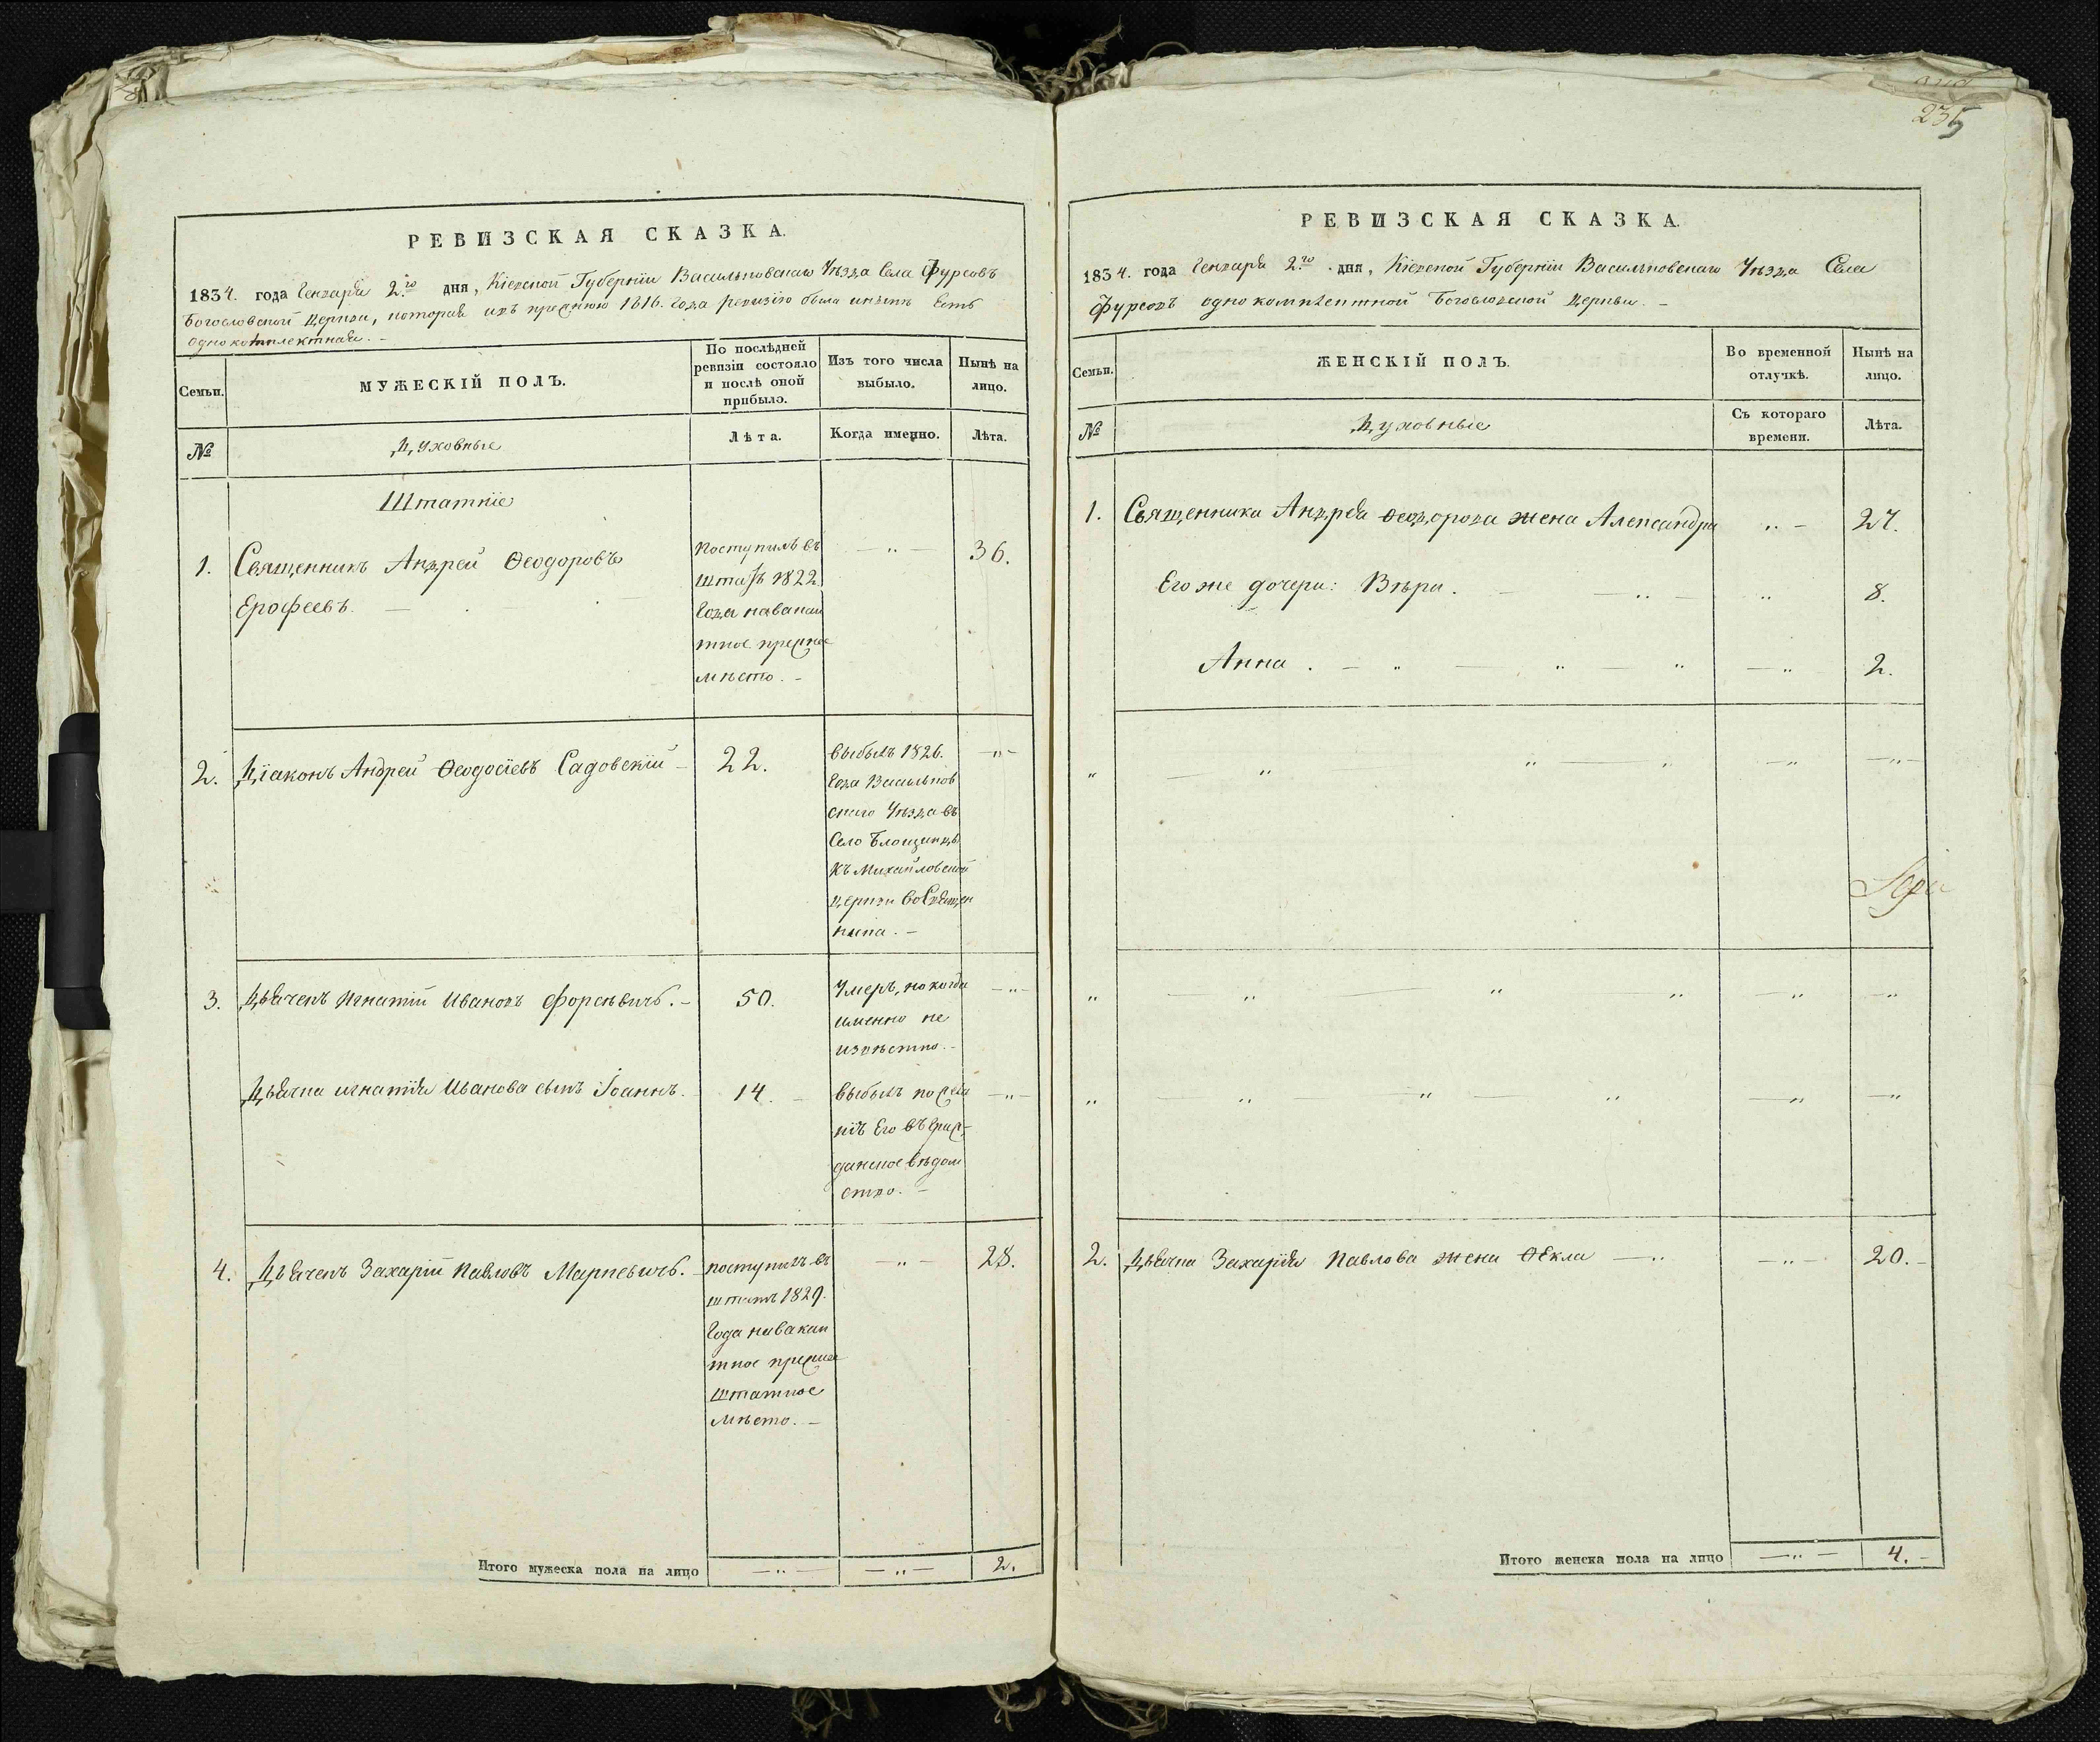 235
РЕВИЗСКАЯ СКАЗКА.
1834. года Генваря 2го дня, Кіевской Губерніи Васильковскаго Уѣзда Села Фурсовъ
Богословской Церкви, которая какъ прежнюю 1816. Года ревизію была и нынѣ Есть
однокомплектная. –
Семьи.
МУЖЕСКІЙ ПОЛЪ.
По послѣдней
ревизіи состояло
и послѣ оной
прибыло.
Изъ того числа
выбыло.
Нынѣ на
лицо.
№
Духовные
Лѣта.
Когда именно.
Лѣта.
Штатніе
1. Священникъ Андрей Ѳеодоровъ
Ерофеевъ. –
Поступилъ въ
штатъ 1822.
Года на вакан
тное прежнее
мѣсто. –
– „ –
36.
2. Діаконъ Андрей Ѳеодосіевъ Садовскій –
22.
Выбылъ 1826.
Года Васильков
скаго Уѣзда въ
Село Блощинцы
Къ Михайловской
Церкви во Священ
ника. –
– „ –
3. Дьячекъ Игнатій Ивановъ Форсѣвичъ. –
50.
Умеръ, но когда
именно не
извѣстно. –
– „ –
Дьячка Игнатія Иванова сынъ Іоаннъ.
14. –
Выбылъ по
Его въ Граж-
данское вѣдом
ство. –
– „ –
4. Дьячекъ Захарій Павловъ Маркевичъ. –
поступилъ въ
штатъ 1829.
Года на вакан
тное прежнее
штатное
Мѣсто. –
– „ –
28.
Итого мужеска пола на лицо – „ – – „ – 2.
РЕВИЗСКАЯ СКАЗКА.
1834. года Генваря 2го дня, Кіевской Губерніи Васильковскаго Уѣзда Села
Фурсовъ однокомплентной Богословской Церкви. –
Семьи.
ЖЕНСКІЙ ПОЛЪ.
Во временной
отлучкѣ.
Нынѣ на
лицо.
№
Духовные
Съ котораго
времени.
Лѣта.
1. Священника Андрея Ѳеодорова жена Александра „ – 27.
Его же дочери: Вѣра. – – „ – „ 8.
Анна. – „ – „ – „ – „ 2.
„ – „ „ – „ – „ – „ –
„ – „ – „ „ – „ – „
„ – „ – „ – „ – „ – „
2. Дьячка Захарія Павлова жена Ѳекла – „ – „ – 20. –
Итого женска пола на лицо – „ – 4. –